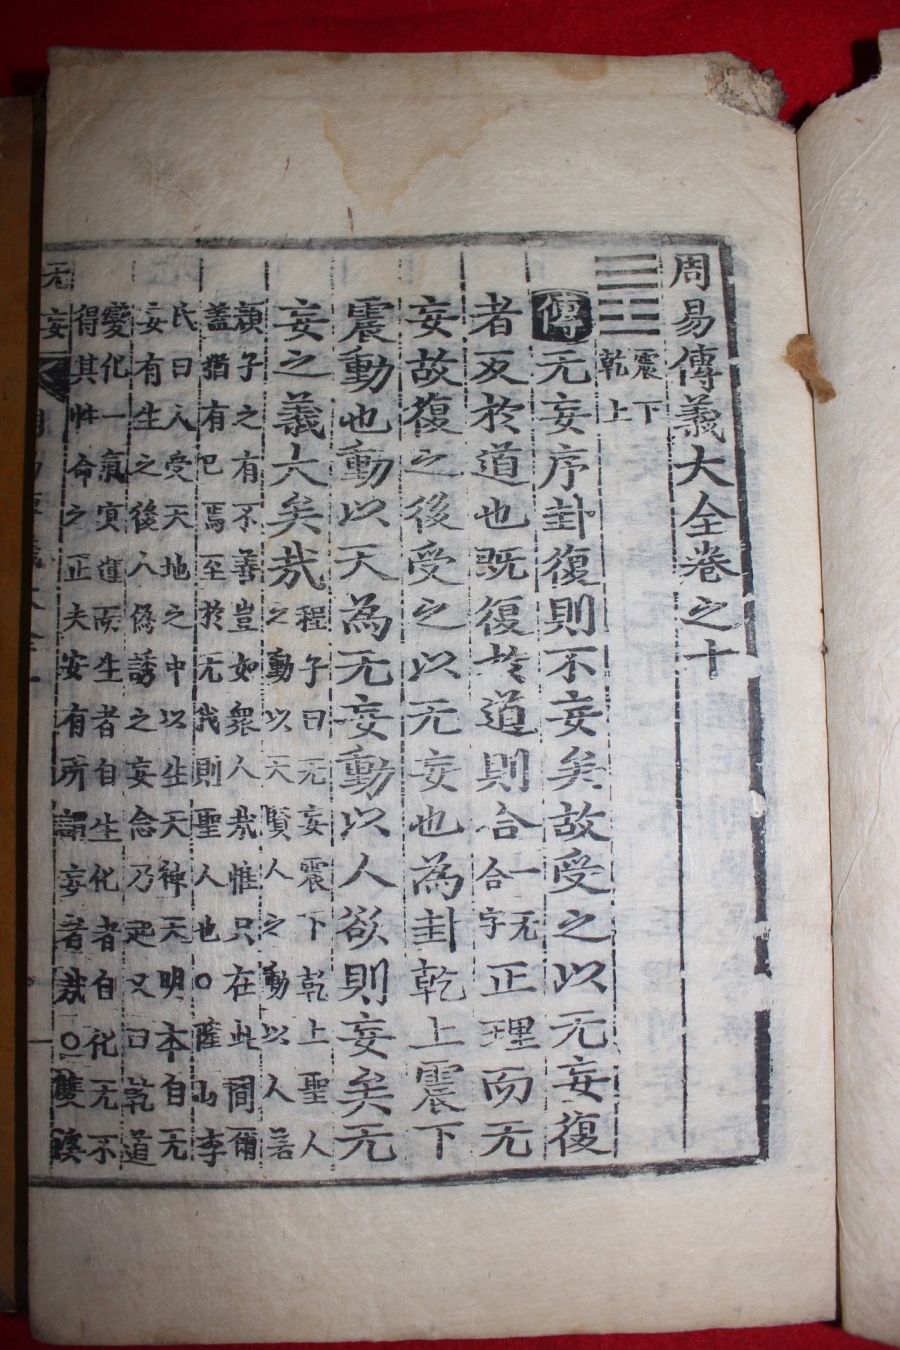 周易傳義大全卷之十
震下
乾上
傳无妄序卦復則不妄矣故受之以无妄復
者反於道也既復於道則合一无合字正理而无
妄故復之後受之以无妄也為卦乾上震下
震動也動以天為无妄動以人欲則妄矣无
妄之義大矣哉程子曰无妄震下乾上聖人
之動以天賢人之動以人若
顔子之有不善豈如衆人哉惟只在此間爾
蓋猶有己焉至於无我則聖人也○薩山李
氏曰人受天地之中以生天神天明本自无
妄有生之後人僞誘之妄念乃起又曰乾道
變化一氣實運而生者自生化者自化无不
得其性命之正夫安有所謂妄者哉○雙湖
无妄